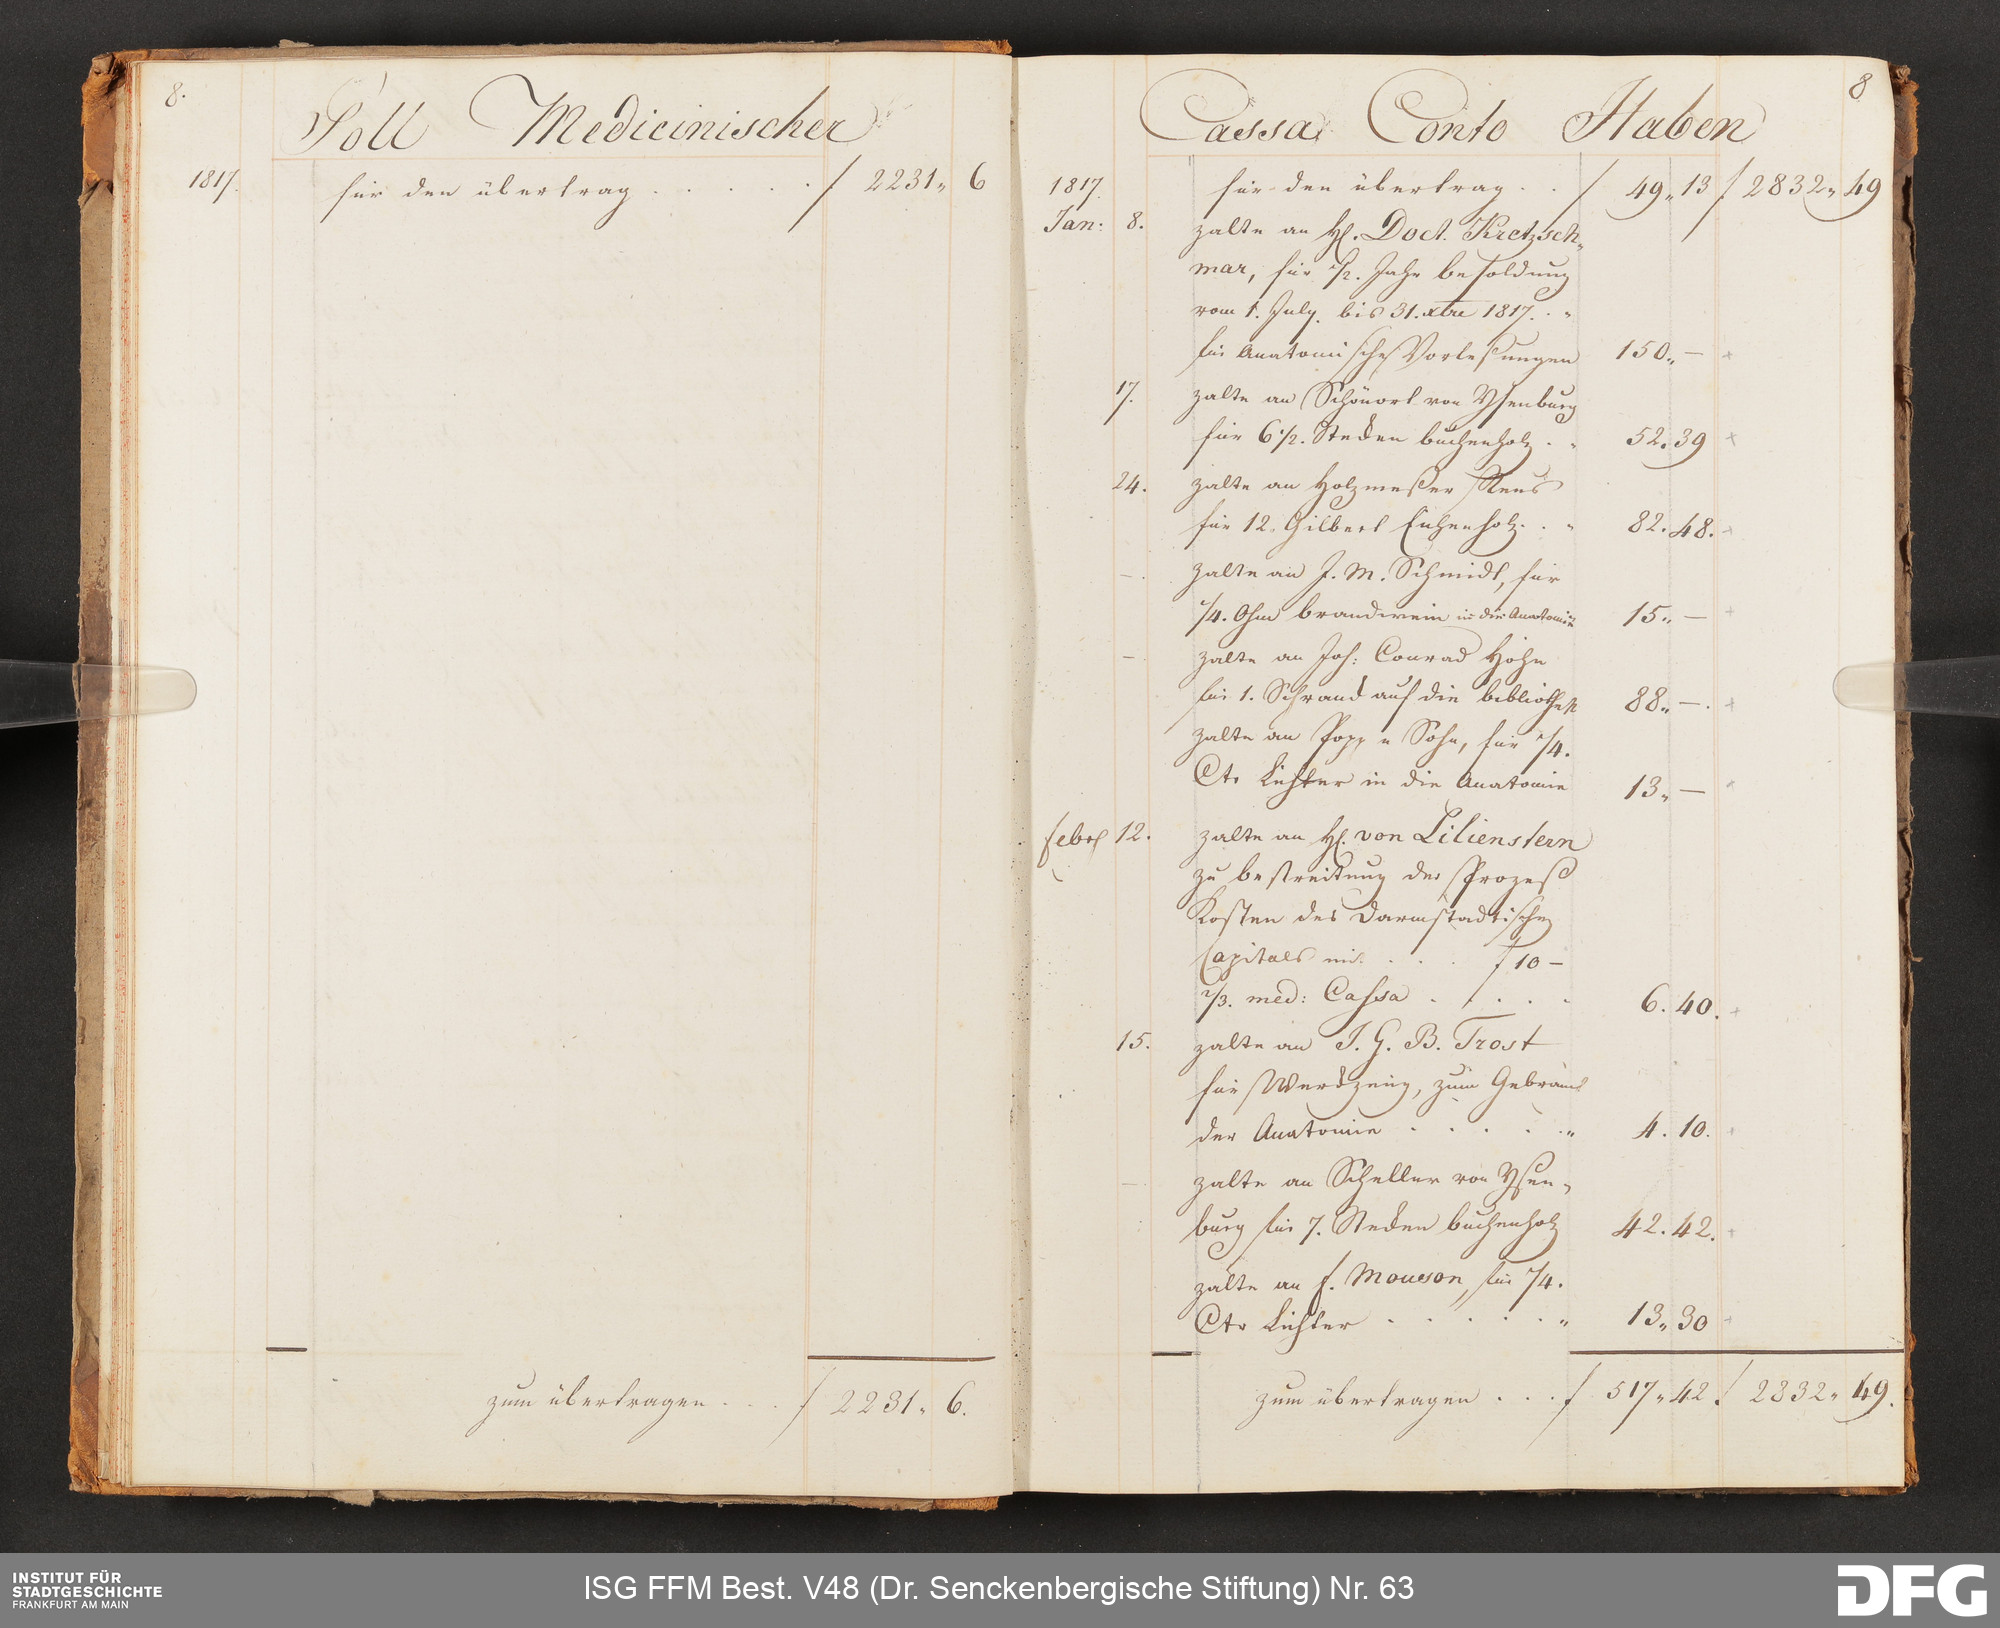 8.
Soll Medicinischer
1817. für den übertrag . . . . . f 2231„ 6
zum übertragen . . . f 2231„ 6.
8
Cassa Conto Haben
1817. für den übertrag . . f 49„13 f 2832„49
Jan: 8. zalte an H. Doct. Kretzsch„
mar, für ½. Jahr besoldung
vom 1. July. bis 31. xbre 1817. . „
für Anatomische Vorlesungen 150„—
17. zalte an Schönort von Ysenburg
für 6½. Stecken buchenholz . „ 52.39
24. zalte an Holzmeßer Reus
für 12. Gilbert Eichenholz . . „ 82.48.
— zalte an J. M. Schmidt, für
¼. Ohm brandwein in die Anatomie 15„—
— zalte an Joh: Conrad Höhn
für 1. Schrank auf die bibliothek 88„—.
zalte an Popp u Sohn, für ¼.
Ctr Lichter in die Anatomie 13„—
febr 12. zalte an H. von Lilienstern
zu bestreitung der Prozeß
Kosten des Darmstadtische
Capitals mit . . . f 10 —
⅔. med: Cassa . . . . . 6.40.
15. zalte an J. G. B. Trost
für Werckzeug, zum Gebrauch
der Anatomie . . . . . „ 4.10.
— zalte an Scheller von Ysen„
burg für 7. Stecken buchenholz 42.42.
zalte an f. Mouson, für ¼.
Ctr Lichter . . . . . „ 13„30
zum übertragen . . . f 517„42. f 2832„49.
INSTITUT FÜR
STADTGESCHICHTE
FRANKFURT AM MAIN
ISG FFM Best. V48 (Dr. Senckenbergische Stiftung) Nr. 63
DFG